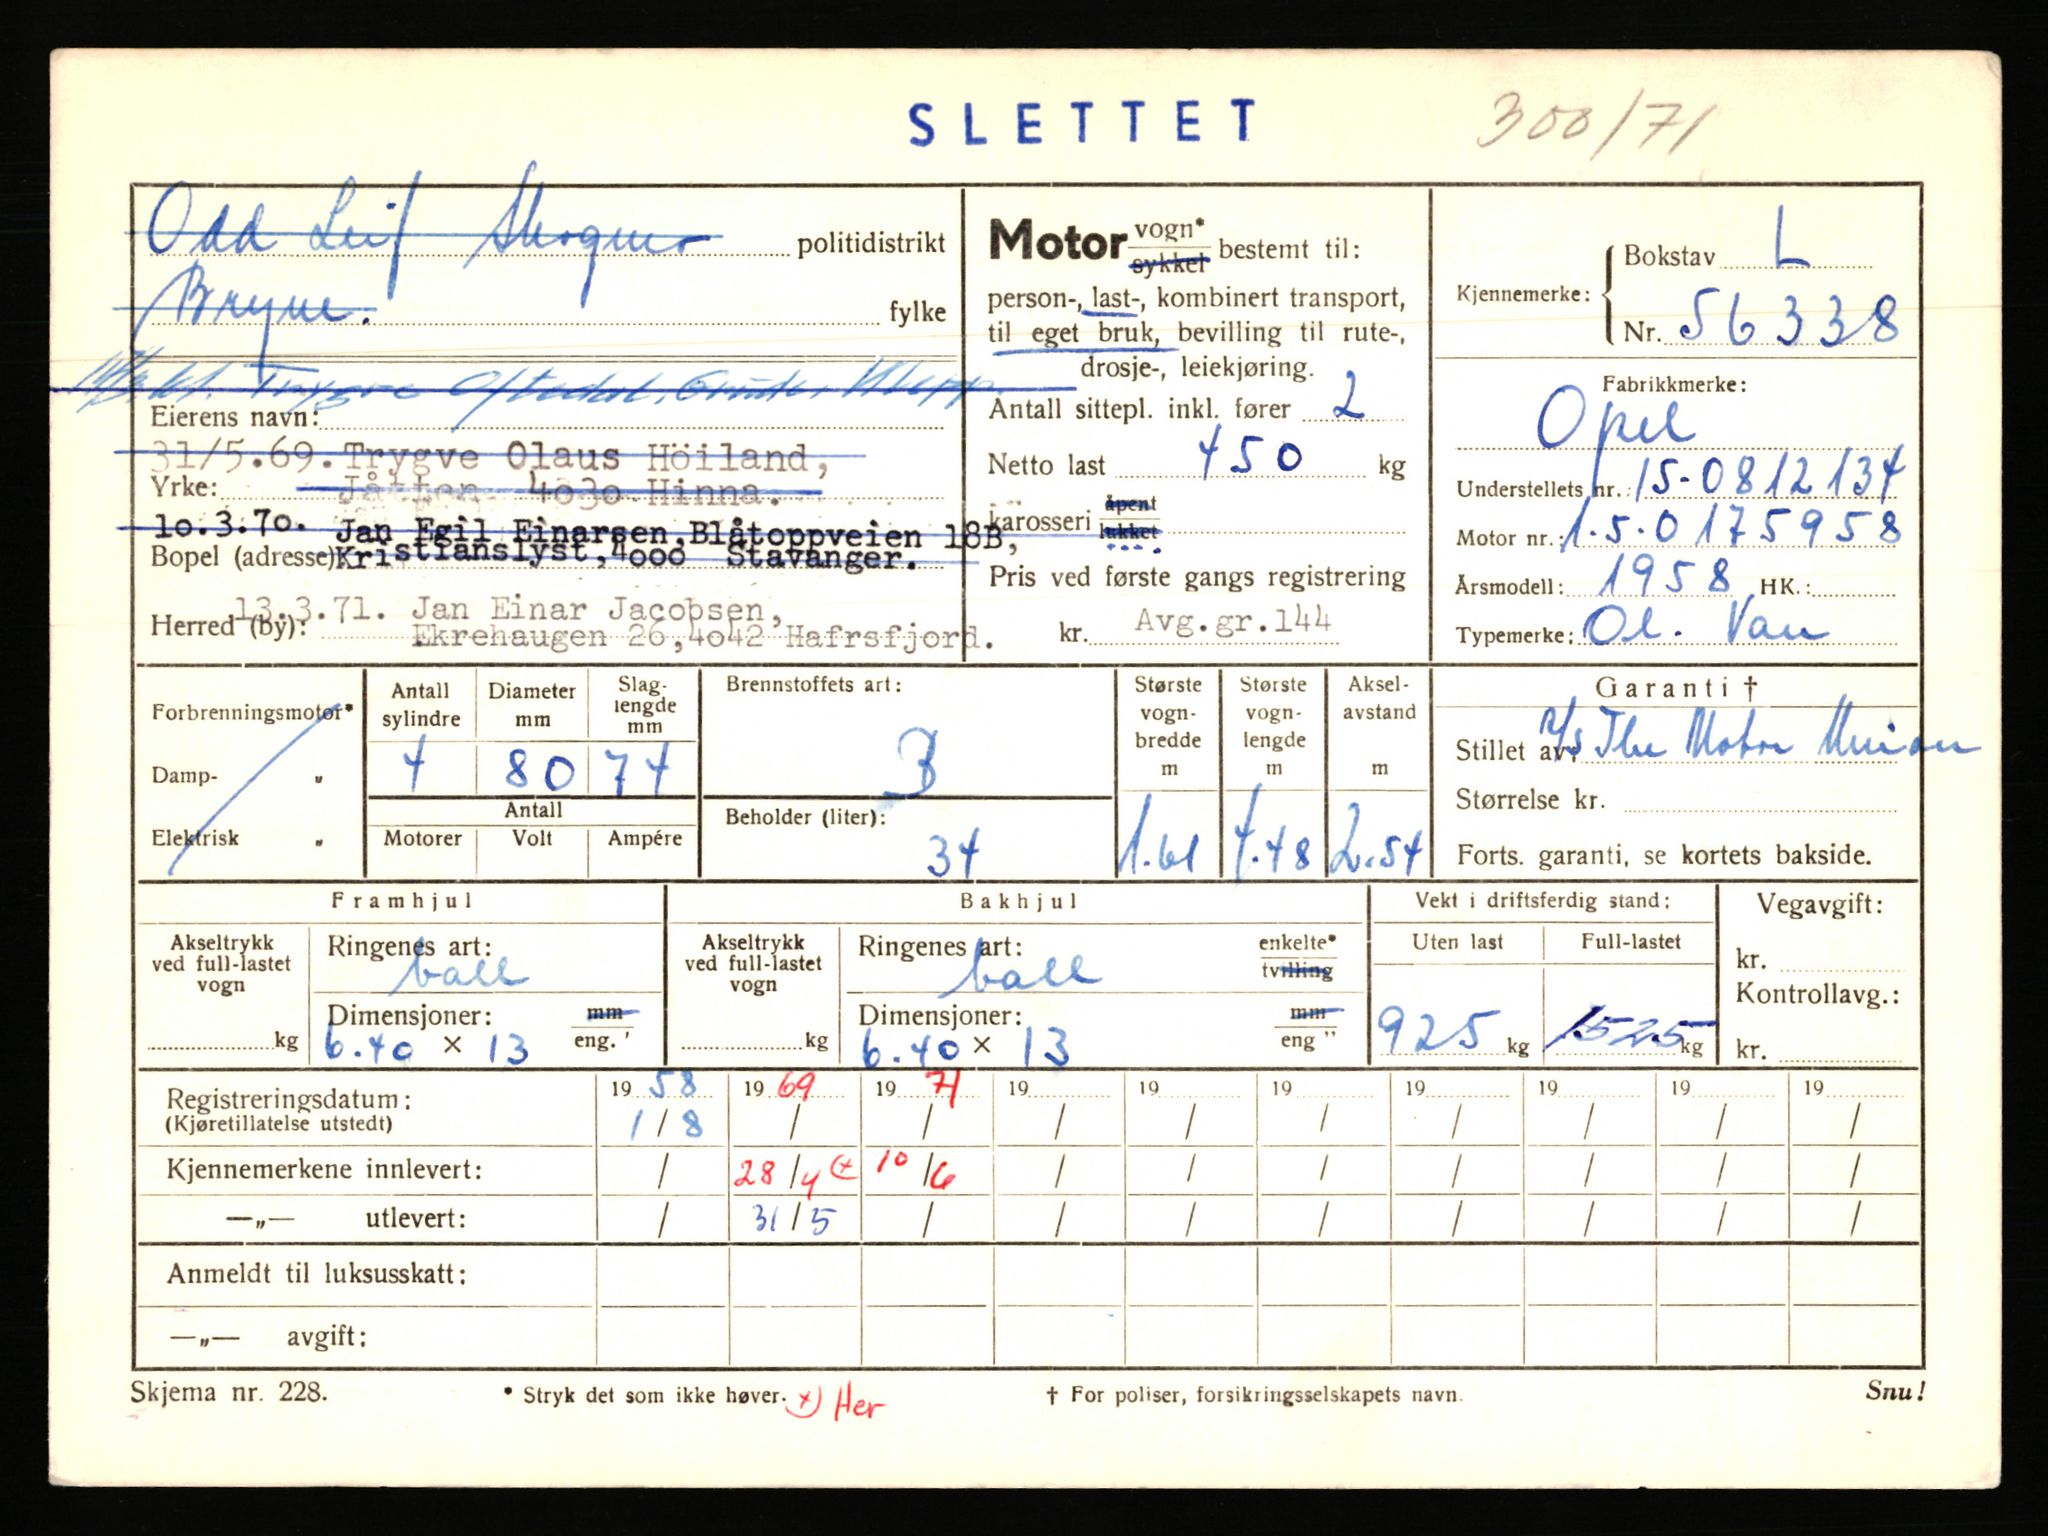 SLETTET
300/71
Odd Leif politidistrikt
Bryne. fylke
Trygve
Eierens navn:
31/5.69. Trygve Olaus Höiland,
Yrke: Jåtten 4030 Hinna.
10.3.70. Jan Egil Einarsen, Blåtoppveien 18B,
Bopel (adresse) Kristianslyst, 4000 Stavanger.
13.3.71. Jan Einar Jacobsen,
Herred (by): Ekrehaugen 26, 4042 Hafrsfjord.
Motor vogn* sykkel bestemt til:
person-, last-, kombinert transport,
til eget bruk, bevilling til rute-,
drosje-, leiekjøring.
Antall sittepl. inkl. fører 2
Netto last 450 kg
karosseri åpent lukket
Pris ved første gangs registrering
kr. Avg.gr.144
Kjennemerke: Bokstav L
Nr. 56338
Fabrikkmerke:
Opel
Understellets nr.: 15-0812134
Motor nr.: 1.5-0175958
Årsmodell: 1958 HK.:
Typemerke: Ol. Van
Forbrenningsmotor*
Damp- „
Elektrisk „
Antall sylindre Diameter mm Slaglengde mm
4 80 74
Antall
Motorer Volt Ampére
Brennstoffets art:
B
Beholder (liter):
34
Største vognbredde m
1.61
Største vognlengde m
4.48
Akselavstand m
2.54
Garanti †
Stillet av: A/S The Motor Union
Størrelse kr.
Forts. garanti, se kortets bakside.
Framhjul
Akseltrykk ved full-lastet vogn
kg
Ringenes art:
ball
Dimensjoner: mm eng.'
6.40 × 13
Bakhjul
Akseltrykk ved full-lastet vogn
kg
Ringenes art: enkelte* tvilling
ball
Dimensjoner: mm eng"
6.40 × 13
Vekt i driftsferdig stand:
Uten last Full-lastet
925 kg 1525 kg
Vegavgift:
kr.
Kontrollavg.:
kr.
Registreringsdatum: 19 58 19 69 19 71 19 19 19 19 19 19 19
(Kjøretillatelse utstedt) 1/8 / / / / / / / / /
Kjennemerkene innlevert: / 28/4 (x 10/6 / / / / / / /
—„— utlevert: / 31/5 / / / / / / / /
Anmeldt til luksusskatt:
—„— avgift:
Skjema nr. 228. * Stryk det som ikke høver. x) Her † For poliser, forsikringsselskapets navn. Snu!